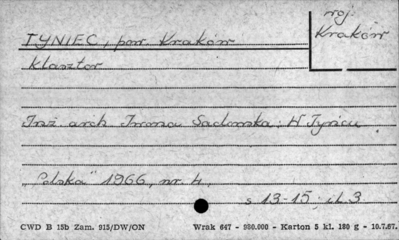 woj.
Kraków
TYNIEC, pow. Kraków
klasztor
Inż. arch Irena Sadowska: W Tyńcu
„Polska" 1966, nr. 4,
s 13-15; il. 3
CWD B 15b Zam. 915/DW/ON Wrak 647 - 980.000 - Karton 5 kl. 180 g - 10.7.67.